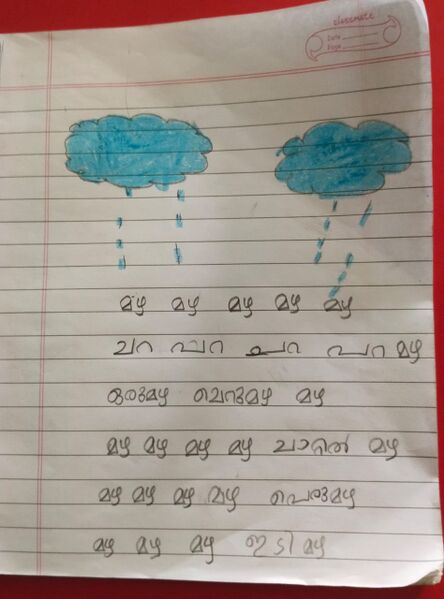 classmate
Date
Page
മഴ മഴ മഴ മഴ മഴ
ചറ പറ ചറ പറ മഴ
ഒരുമഴ ചെറുമഴ മഴ
മഴ മഴ മഴ മഴ ചാറ്റൽ മഴ
മഴ മഴ മഴ മഴ പെരുമഴ
മഴ മഴ മഴ ഇടി മഴ